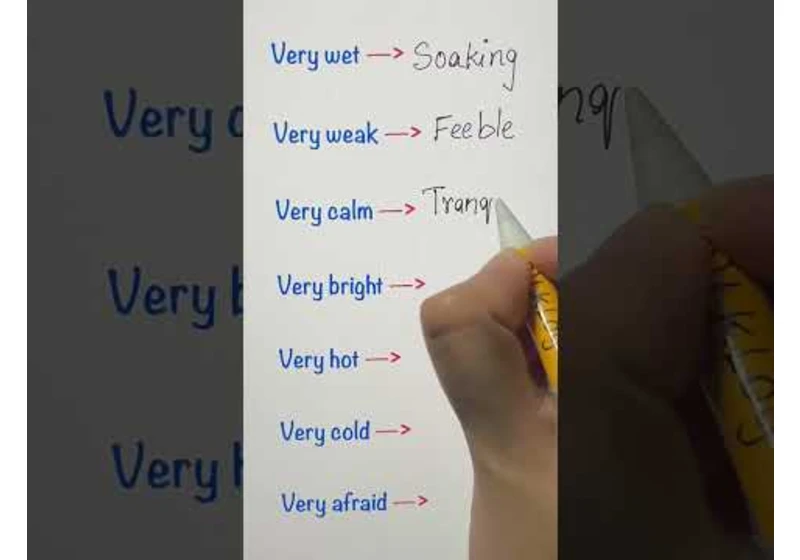 Very wet —> Soaking
Very weak —> Feeble
Very calm —> Tranq
Very bright —>
Very hot —>
Very cold —>
Very afraid —>